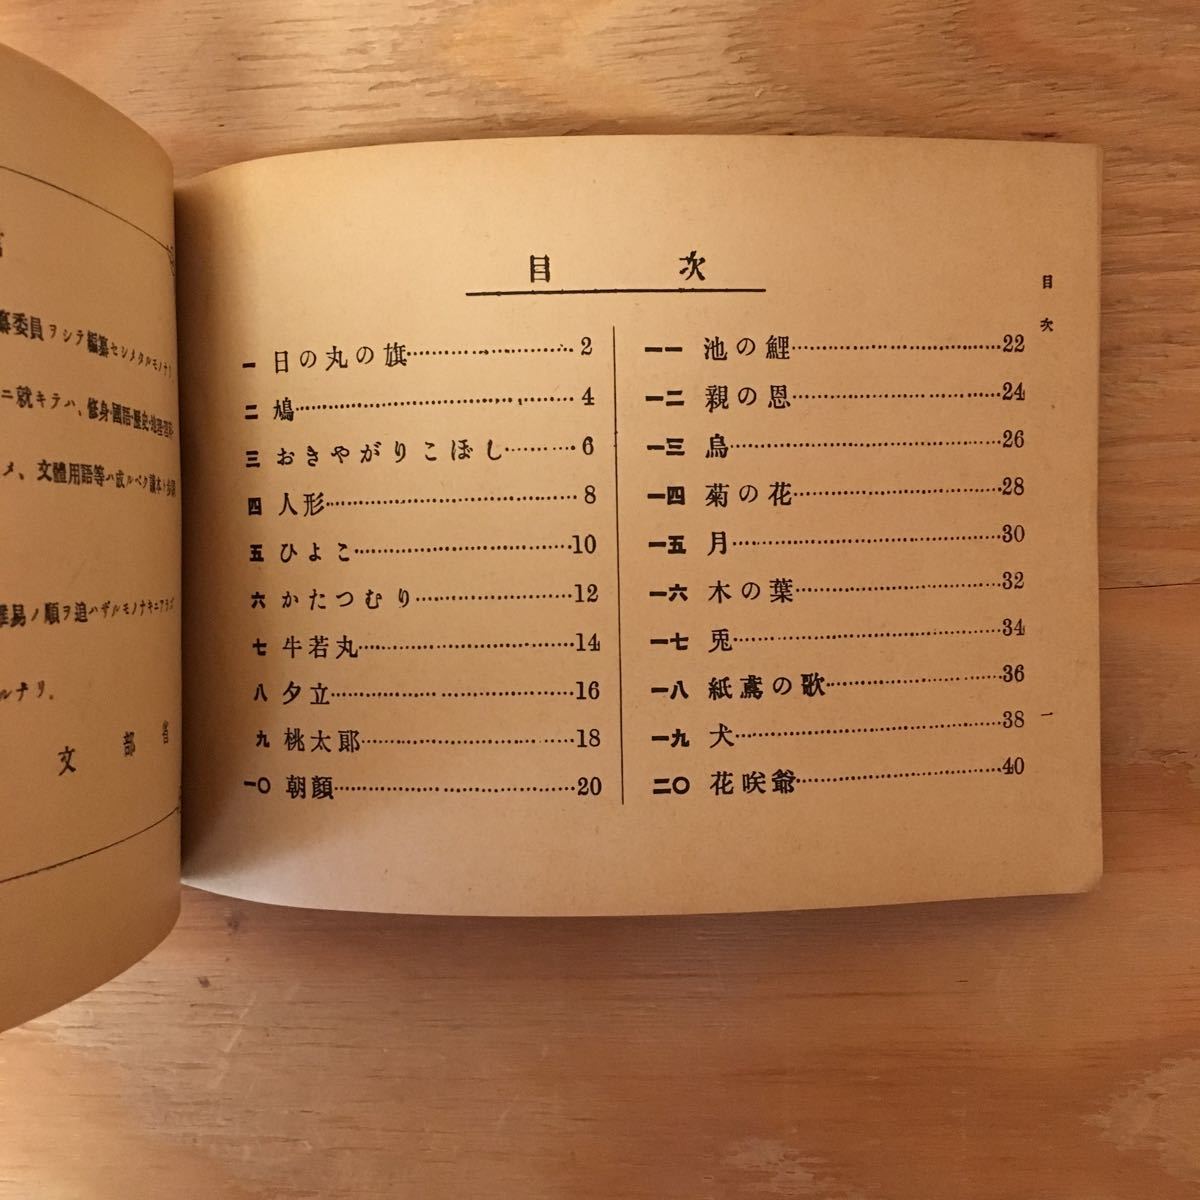 纂委員ヲシテ編纂セシメタルモノナリ。
ニ就キテハ、修身・國語・歴史・地理・理科・
メ、文體用語等ハ成ルベク讀本ト歩調
難易ノ順ヲ追ハザルモノナキニアラズ
ルナリ。
文部省
目次
一 日の丸の旗 2
二 鳩 4
三 おきやがりこぼし 6
四 人形 8
五 ひよこ 10
六 かたつむり 12
七 牛若丸 14
八 夕立 16
九 桃太郎 18
一〇 朝顔 20
一一 池の鯉 22
一二 親の恩 24
一三 烏 26
一四 菊の花 28
一五 月 30
一六 木の葉 32
一七 兎 34
一八 紙鳶の歌 36
一九 犬 38
二〇 花咲爺 40
目次
一